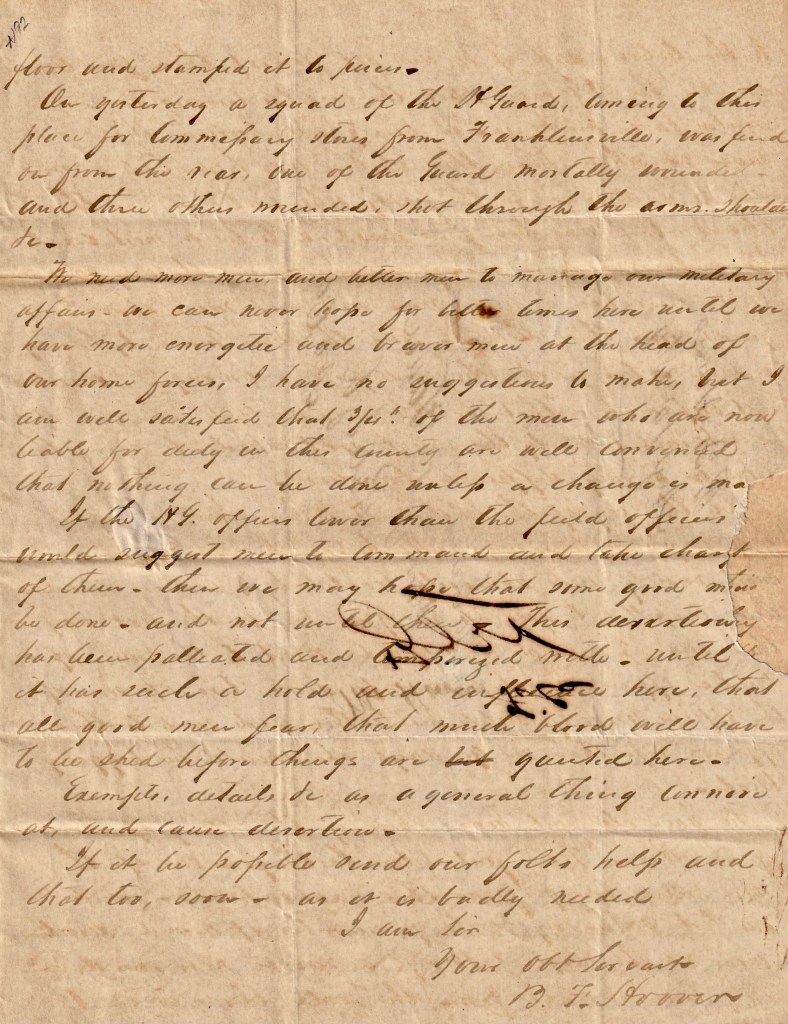 floor and stamped it to pieces.
On yesterday a squad of the H Guard, coming to this
place for Commessary stores from Franklinsville, was fired
on from the rear, one of the Guard mortally wounde
and three others wounded, shot through the arms. shoulder
&c.
We need more men, and better men to manage our military
affairs - we can never hope for better times here until we
have more energetic and braver men at the head of
our home forces, I have no suggestions to make, but I
am well satisfied that 3/4th. of the men who are now
leable for duty in this County are well convinced
that nothing can be done unless a change is ma
If the H G. officers lower than the field officers
would suggest men to command and take charge
of them - then we may hope that some good
be done - and not until then. This desertion
has been palleated and temporized with - until
it has such a hold and influence here, that
all good men fear, that much blood will have
to be shed before things are but quieted here -
Exempts, details &c as a general thing connive
at, and cause desertion -
If it be possible send our folks help and
that too, soon - as it is badly needed
I am Sir
Your Obt Servant
B. F. Hoover